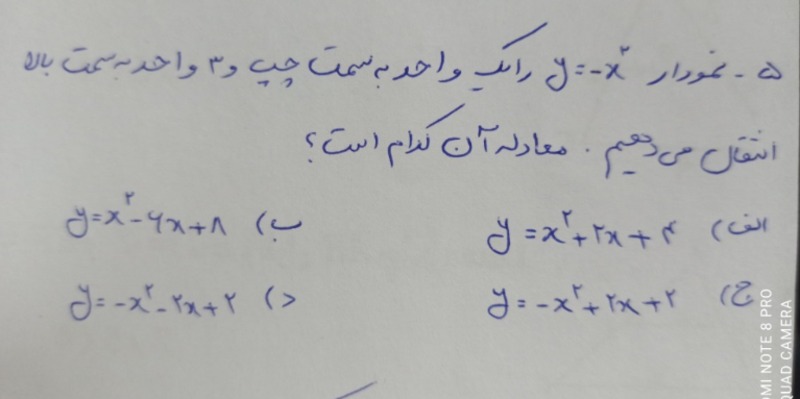 ۵ - نمودار y=-x² را یک واحد به سمت چپ و ۳ واحد به سمت بالا
انتقال می دهیم . معادله آن کدام است؟
الف) y=x²+۲x+۴ ب) y=x²-۶x+۸
ج) y=-x²+۲x+۲ د) y=-x²-۲x+۲
OMI NOTE 8 PRO
QUAD CAMERA